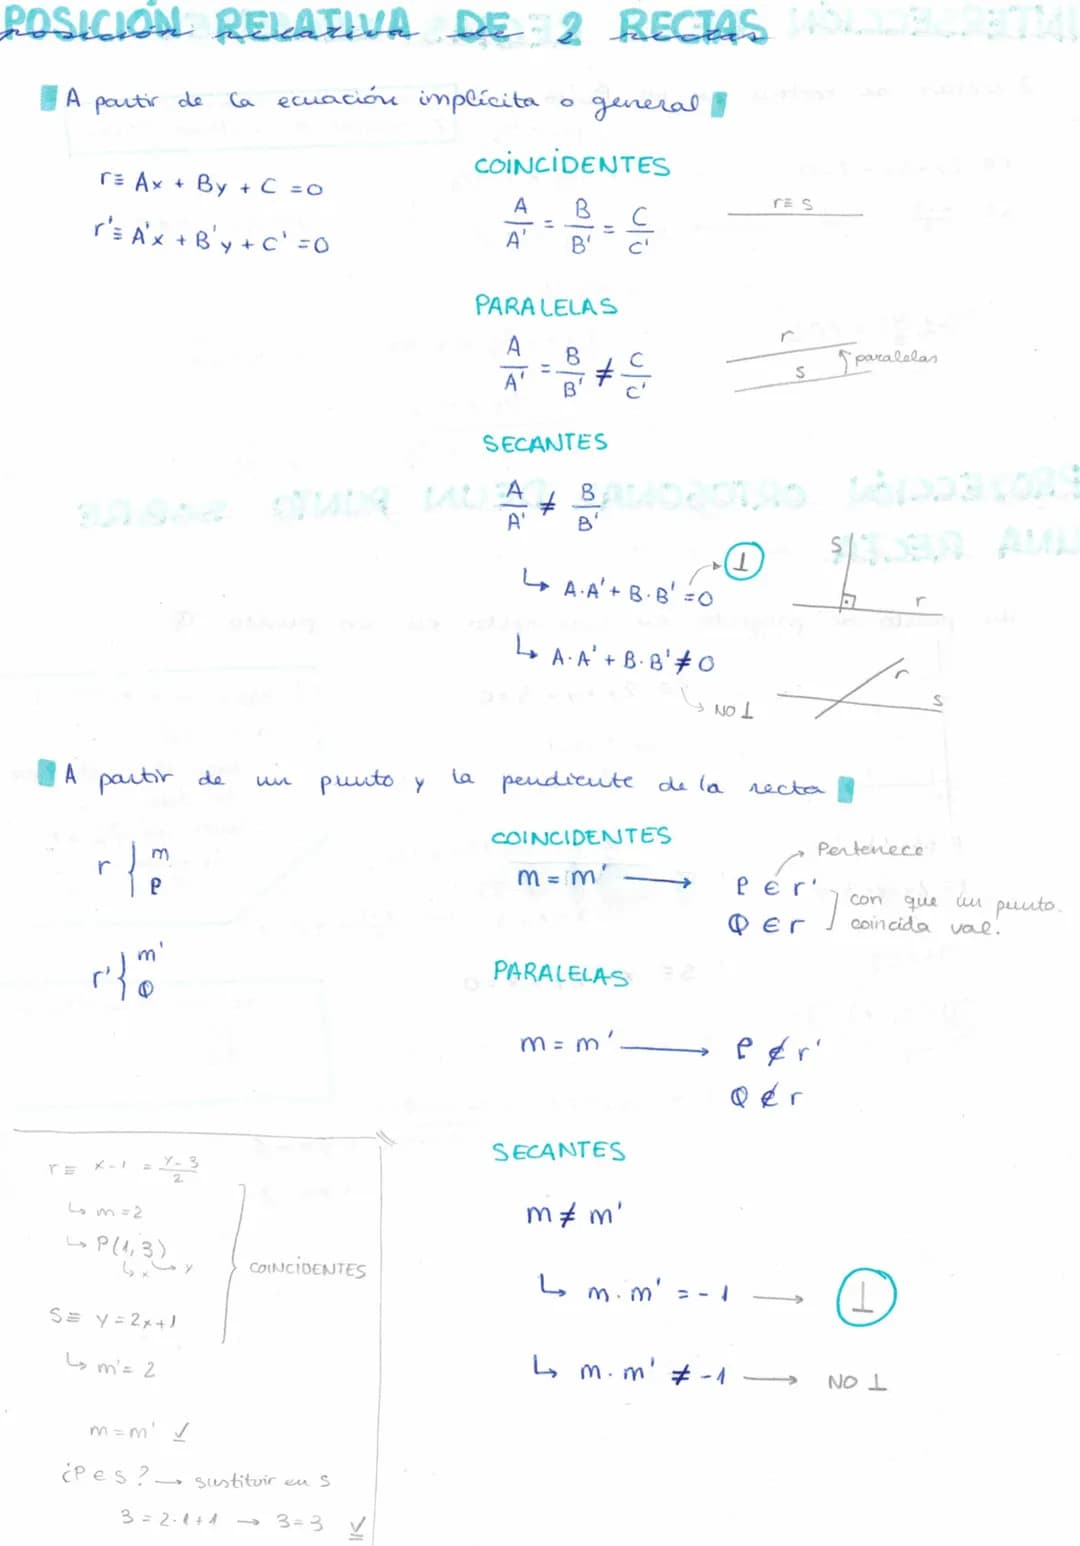 POSICIÓN RELATIVA DE 2 RECTAS
A partir de la ecuación implícita o general
r≡ Ax + By + C = 0
r'≡ A'x + B'y + C' = 0
COINCIDENTES
A/A' = B/B' = C/C'
r≡ s
PARALELAS
A/A' = B/B' ≠ C/C'
r
s
paralelas
SECANTES
A/A' ≠ B/B'
↳ A·A' + B·B' = 0 → ⊥
s
r
↳ A·A' + B·B' ≠ 0
↳ NO ⊥
r
s
A partir de un punto y la pendiente de la recta
r { m
P
r' { m'
Q
COINCIDENTES
m = m' → P ∈ r'
Q ∈ r
Pertenece
con que un punto
coincida vale.
PARALELAS
m = m' → P ∉ r'
Q ∉ r
SECANTES
m ≠ m'
↳ m · m' = -1 → ⊥
↳ m · m' ≠ -1 → NO ⊥
r≡ x-1 = y-3/2
↳ m=2
↳ P(1,3)
↳ x ↳ y
COINCIDENTES
s≡ y=2x+1
↳ m'= 2
m=m' ✓
¿P ∈ s? → sustituir en s
3 = 2·1+1 → 3=3 ✓